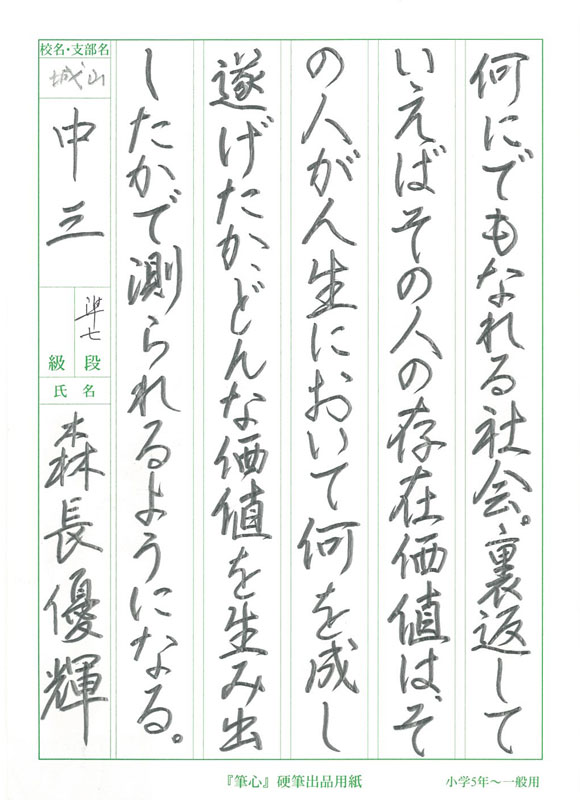 何にでもなれる社会。裏返して
いえばその人の存在価値は、そ
の人が人生において何を成し
遂げたか、どんな価値を生み出
したかで測られるようになる。
校名・支部名
城山
中三
準七
段
級
氏名
森長優輝
『筆心』硬筆出品用紙
小学5年～一般用